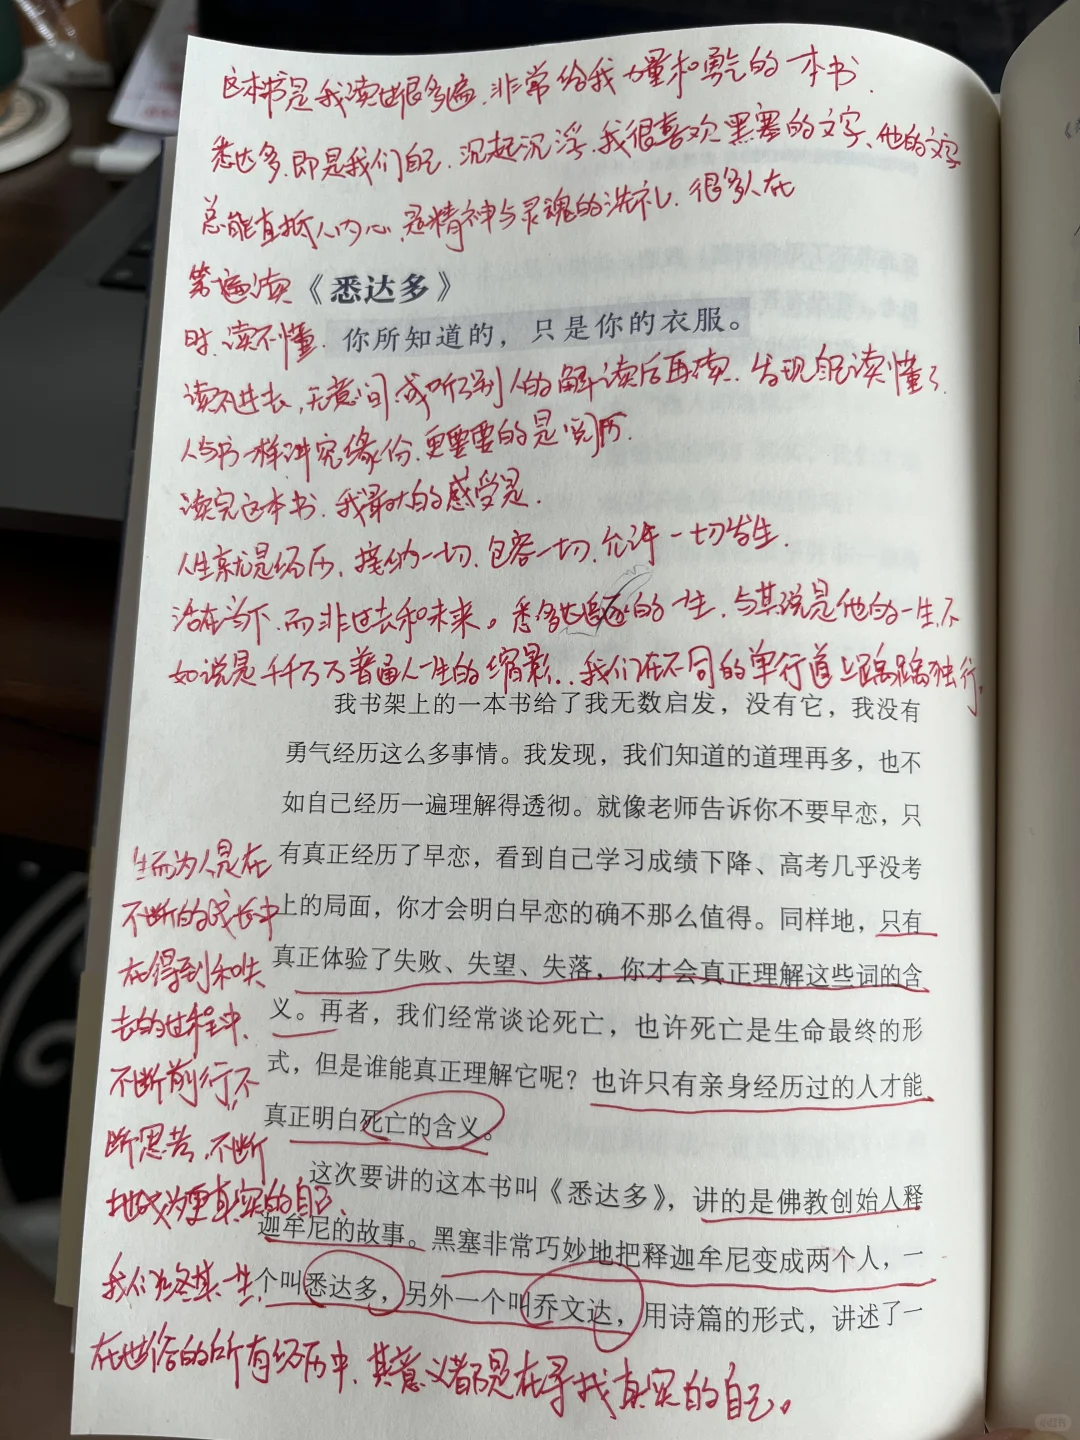 这本书是我读过很多遍、非常给我力量和勇气的一本书.
悉达多、即是我们自己、沉起沉浮、我很喜欢黑塞的文字、他的文字
总能直抵人内心、是精神与灵魂的洗礼、很多人在
第一遍读
《悉达多》
时、读不懂.
你所知道的，只是你的衣服。
读不进去，无意间或听了别人的解读后再读、发现自己读懂了.
人与书一样讲究缘份、更重要的是阅历.
读完这本书、我最大的感受是.
人生就是经历、接纳一切、包容一切、允许一切发生.
活在当下、而非过去和未来。悉达多的一生、与其说是他的一生、不
如说是千千万万普通人一生的缩影...我们在不同的单行道上踽踽独行。
我书架上的一本书给了我无数启发，没有它，我没有
勇气经历这么多事情。我发现，我们知道的道理再多，也不
如自己经历一遍理解得透彻。就像老师告诉你不要早恋，只
有真正经历了早恋，看到自己学习成绩下降、高考几乎没考
上的局面，你才会明白早恋的确不那么值得。同样地，只有
真正体验了失败、失望、失落，你才会真正理解这些词的含
义。再者，我们经常谈论死亡，也许死亡是生命最终的形
式，但是谁能真正理解它呢？也许只有亲身经历过的人才能
真正明白死亡的含义。
这次要讲的这本书叫《悉达多》，讲的是佛教创始人释
迦牟尼的故事。黑塞非常巧妙地把释迦牟尼变成两个人，一
个叫悉达多，另外一个叫乔文达，用诗篇的形式，讲述了一
生而为人、是在
不断的成长中
在得到和失
去的过程中、
不断前行、不
断思苦、不断
地成为更真实的自己、
我们终其一生、
在世俗的所有经历中、其意义都是在寻找真实的自己。
小红书